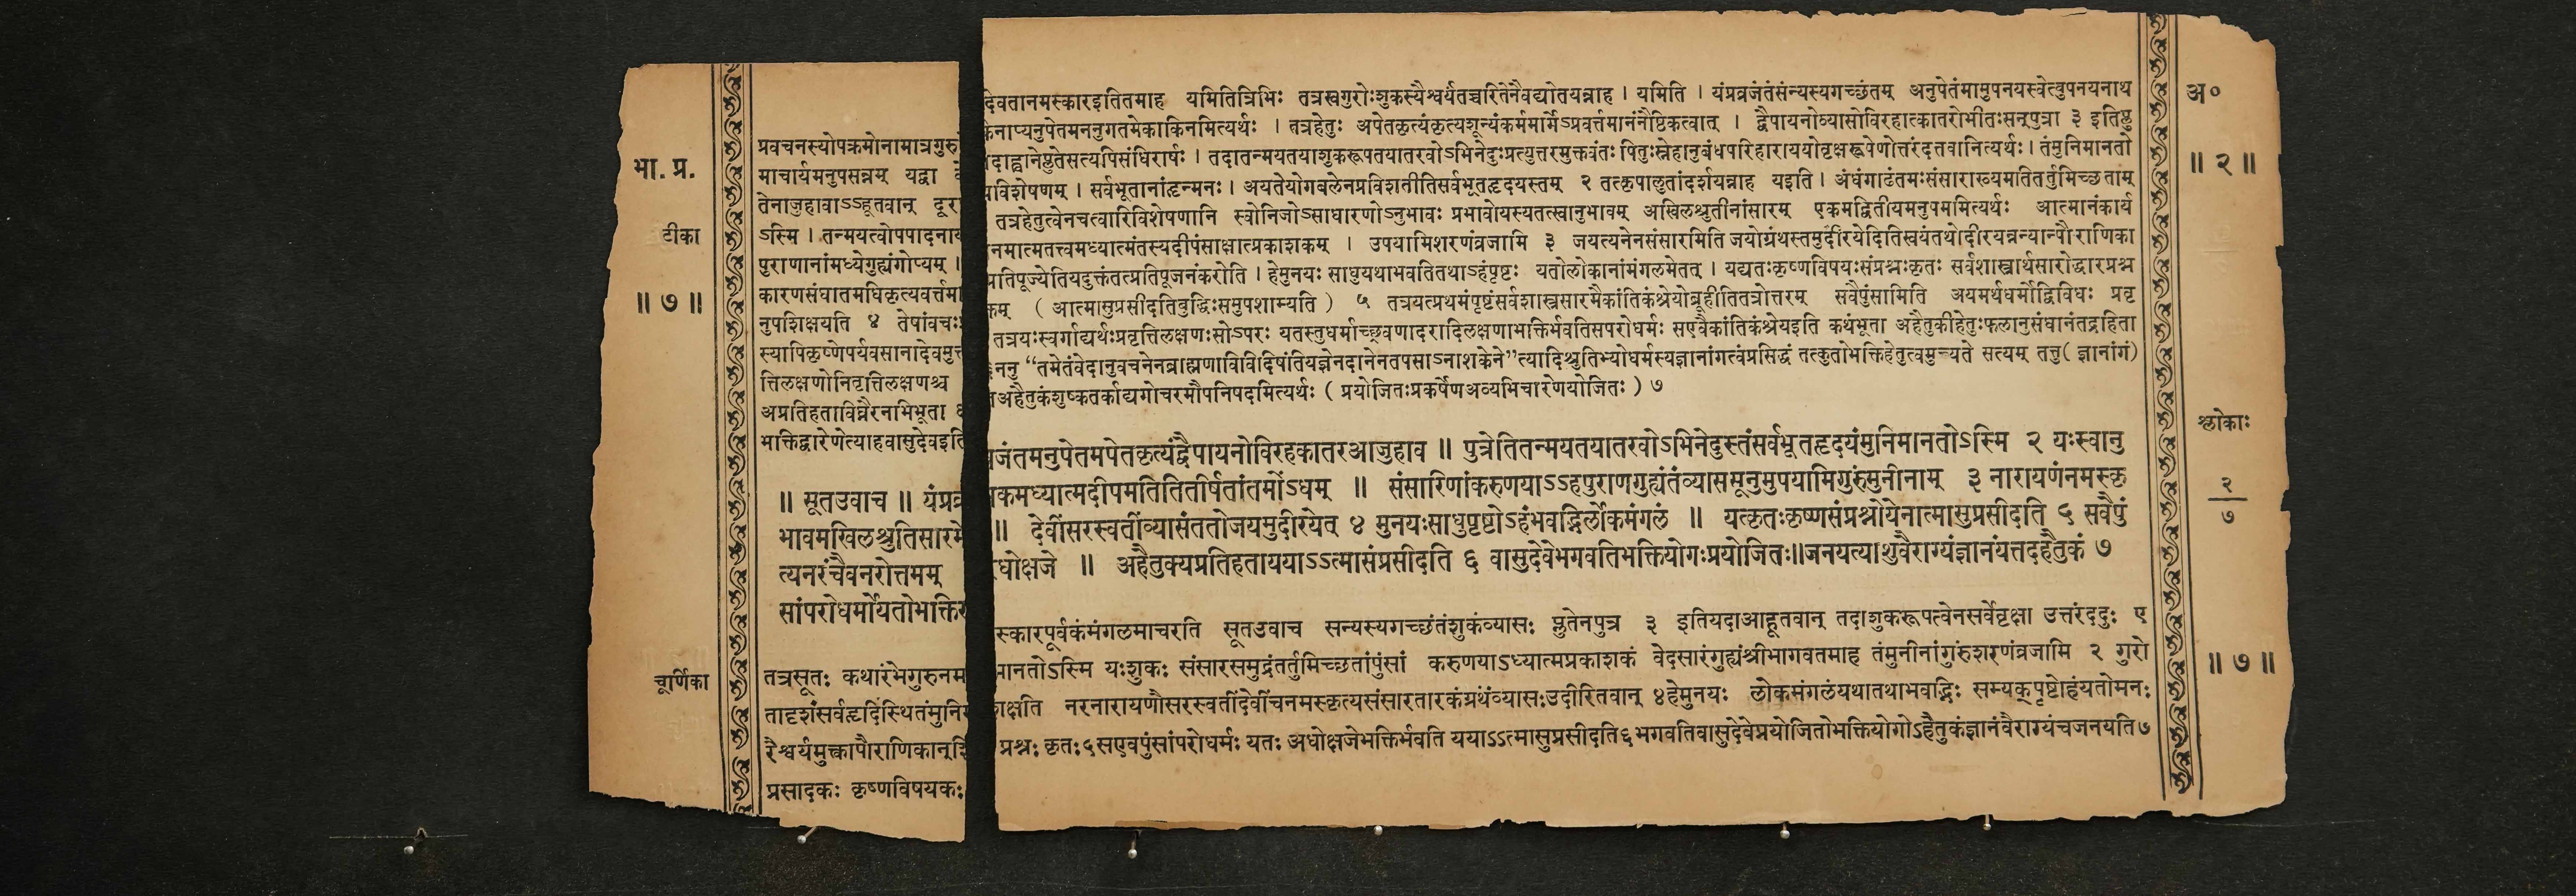 भा. प्र.
टीका
॥ ७ ॥
चूर्णिका
प्रवचनस्योपक्रमोनामात्रगुरु देवतानमस्कारइतितमाह यमितित्रिभिः तत्रस्वगुरोःशुकस्यैश्वर्यंतच्चरितेनैवद्योतयन्नाह । यमिति । यंप्रव्रजंतंसंन्यस्यगच्छंतम् अनुपेतंमामुपनयस्वेत्युपनयनाथ
माचार्यमनुपसन्नम् यद्वा केनाप्यनुपेतमननुगतमेकाकिनमित्यर्थः । तत्रहेतुः अपेतकृत्यंकृत्यशून्यंकर्ममार्गेऽप्रवर्त्तमानंनैष्ठिकत्वात् । द्वैपायनोव्यासोविरहात्कातरोभीतःसन्पुत्रा ३ इतिप्लु
तेनाजुहावाऽऽहूतवान् दूरा दाह्वानेप्लुतेसत्यपिसंधिरार्षः । तदातन्मयतयाशुकरूपतयातरवोऽभिनेदुःप्रत्युत्तरमुक्तवंतः पितुःस्नेहानुबंधपरिहारायययोवृक्षरूपेणोत्तरंदत्तवानित्यर्थः । तंमुनिमानतो
ऽस्मि । तन्मयत्वोपपादनाय विशेषणम् । सर्वभूतानांहृन्मनः । अयतेयोगबलेनप्रविशतीतिसर्वभूतहृदयस्तम् २ तत्कृपालुतांदर्शयन्नाह यइति । अंधंगाढंतमःसंसाराख्यमतितर्तुमिच्छताम्
पुराणानांमध्येगुह्यंगोप्यम् । तत्रहेतुत्वेनचत्वारिविशेषणानि स्वोनिजोऽसाधारणोऽनुभावः प्रभावोयस्यतत्स्वानुभावम् अखिलश्रुतीनांसारम् एकमद्वितीयमनुपममित्यर्थः आत्मानंकार्य
कारणसंघातमधिकृत्यवर्त्तमानमात्मतत्त्वमध्यात्मंतस्यदीपंसाक्षात्प्रकाशकम् । उपयामिशरणंव्रजामि ३ जयत्यनेनसंसारमिति जयोग्रंथस्तमुदीरयेदितिस्वयंतथोदीरयन्नन्यान्पौराणिका
नुपशिक्षयति ४ तेषांवचःप्रतिपूज्येतियदुक्तंतत्प्रतिपूजनंकरोति । हेमुनयः साधुयथाभवतितथाऽहंपृष्टः यतोलोकानांमंगलमेतत् । यद्यतःकृष्णविषयःसंप्रश्नःकृतः सर्वशास्त्रार्थसारोद्धारप्रश्न
स्यापिकृष्णेपर्यवसानादेवमुक्तम् ( आत्मासुप्रसीदतिबुद्धिःसमुपशाम्यति ) ५ तत्रयत्प्रथमंपृष्टंसर्वशास्त्रसारमैकांतिकंश्रेयोब्रूहीतितत्रोत्तरम् सवैपुंसामिति अयमर्थधर्मोद्विविधः प्रवृ
त्तिलक्षणोनिवृत्तिलक्षणश्च तत्रयःस्वर्गाद्यर्थःप्रवृत्तिलक्षणःसोऽपरः यतस्तुधर्माच्छ्रवणादरादिलक्षणाभक्तिर्भवतिसपरोधर्मः सएवैकांतिकंश्रेयइति कथंभूता अहैतुकीहेतुःफलानुसंधानंतद्रहिता
अप्रतिहताविघ्नैरनभिभूता ६ ननु “तमेतंवेदानुवचनेनब्राह्मणाविविदिषंतियज्ञेनदानेनतपसाऽनाशकेने”त्यादिश्रुतिभ्योधर्मस्यज्ञानांगत्वंप्रसिद्धं तत्कुतोभक्तिहेतुत्वमुच्यते सत्यम् तत्तु( ज्ञानांगं)
भक्तिद्वारेणेत्याहवासुदेवइति अहैतुकंशुष्कतर्काद्यगोचरमौपनिषदमित्यर्थः ( प्रयोजितःप्रकर्षेणअव्यभिचारेणयोजितः ) ७
॥ सूतउवाच ॥ यंप्रव्रजंतमनुपेतमपेतकृत्यंद्वैपायनोविरहकातरआजुहाव ॥ पुत्रेतितन्मयतयातरवोऽभिनेदुस्तंसर्वभूतहृदयंमुनिमानतोऽस्मि २ यःस्वानु
भावमखिलश्रुतिसारमेकमध्यात्मदीपमतितितीर्षतांतमोंऽधम् ॥ संसारिणांकरुणयाऽऽहपुराणगुह्यंतंव्याससूनुमुपयामिगुरुंमुनीनाम् ३ नारायणंनमस्कृ
त्यनरंचैवनरोत्तमम् ॥ देवींसरस्वतींव्यासंततोजयमुदीरयेत् ४ मुनयःसाधुपृष्टोऽहंभवद्भिर्लोकमंगलं ॥ यत्कृतःकृष्णसंप्रश्नोयेनात्मासुप्रसीदति ५ सवैपुं
सांपरोधर्मोयतोभक्तिरधोक्षजे ॥ अहैतुक्यप्रतिहताययाऽऽत्मासंप्रसीदति ६ वासुदेवेभगवतिभक्तियोगःप्रयोजितः॥जनयत्याशुवैराग्यंज्ञानंयत्तदहैतुकं ७
तत्रसूतः कथारंभेगुरुनमस्कारपूर्वकंमंगलमाचरति सूतउवाच सन्यस्यगच्छंतंशुकंव्यासः प्लुतेनपुत्र ३ इतियदाआहूतवान् तदाशुकरूपत्वेनसर्वेवृक्षा उत्तरंददुः ए
तादृशंसर्वहृदिस्थितंमुनिमानतोऽस्मि यःशुकः संसारसमुद्रंतर्तुमिच्छतांपुंसां करुणयाऽध्यात्मप्रकाशकं वेदसारंगुह्यंश्रीभागवतमाह तंमुनीनांगुरुंशरणंव्रजामि २ गुरो
रैश्वर्यमुक्त्वापौराणिकान्शिक्षति नरनारायणौसरस्वतींदेवींचनमस्कृत्यसंसारतारकंग्रंथंव्यासःउदीरितवान् ४हेमुनयः लोकमंगलंयथातथाभवद्भिः सम्यक्पृष्टोहंयतोमनः
प्रसादकः कृष्णविषयकः प्रश्नः कृतः५सएवपुंसांपरोधर्मः यतः अधोक्षजेभक्तिर्भवति ययाऽऽत्मासुप्रसीदति६भगवतिवासुदेवेप्रयोजितोभक्तियोगोऽहैतुकंज्ञानंवैराग्यंचजनयति७
अ०
॥ २ ॥
श्लोकाः
२
७
॥ ७ ॥